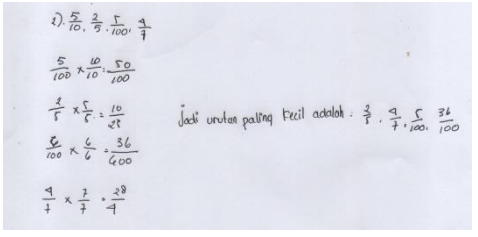 2). 5/10, 2/5, 5/100, 4/7
5/100 × 10/10 = 50/100
2/5 × 5/5 = 10/25
6/100 × 6/6 = 36/600
4/7 × 7/7 = 28/4
Jadi urutan paling kecil adalah : 2/5, 4/7, 5/100, 36/100